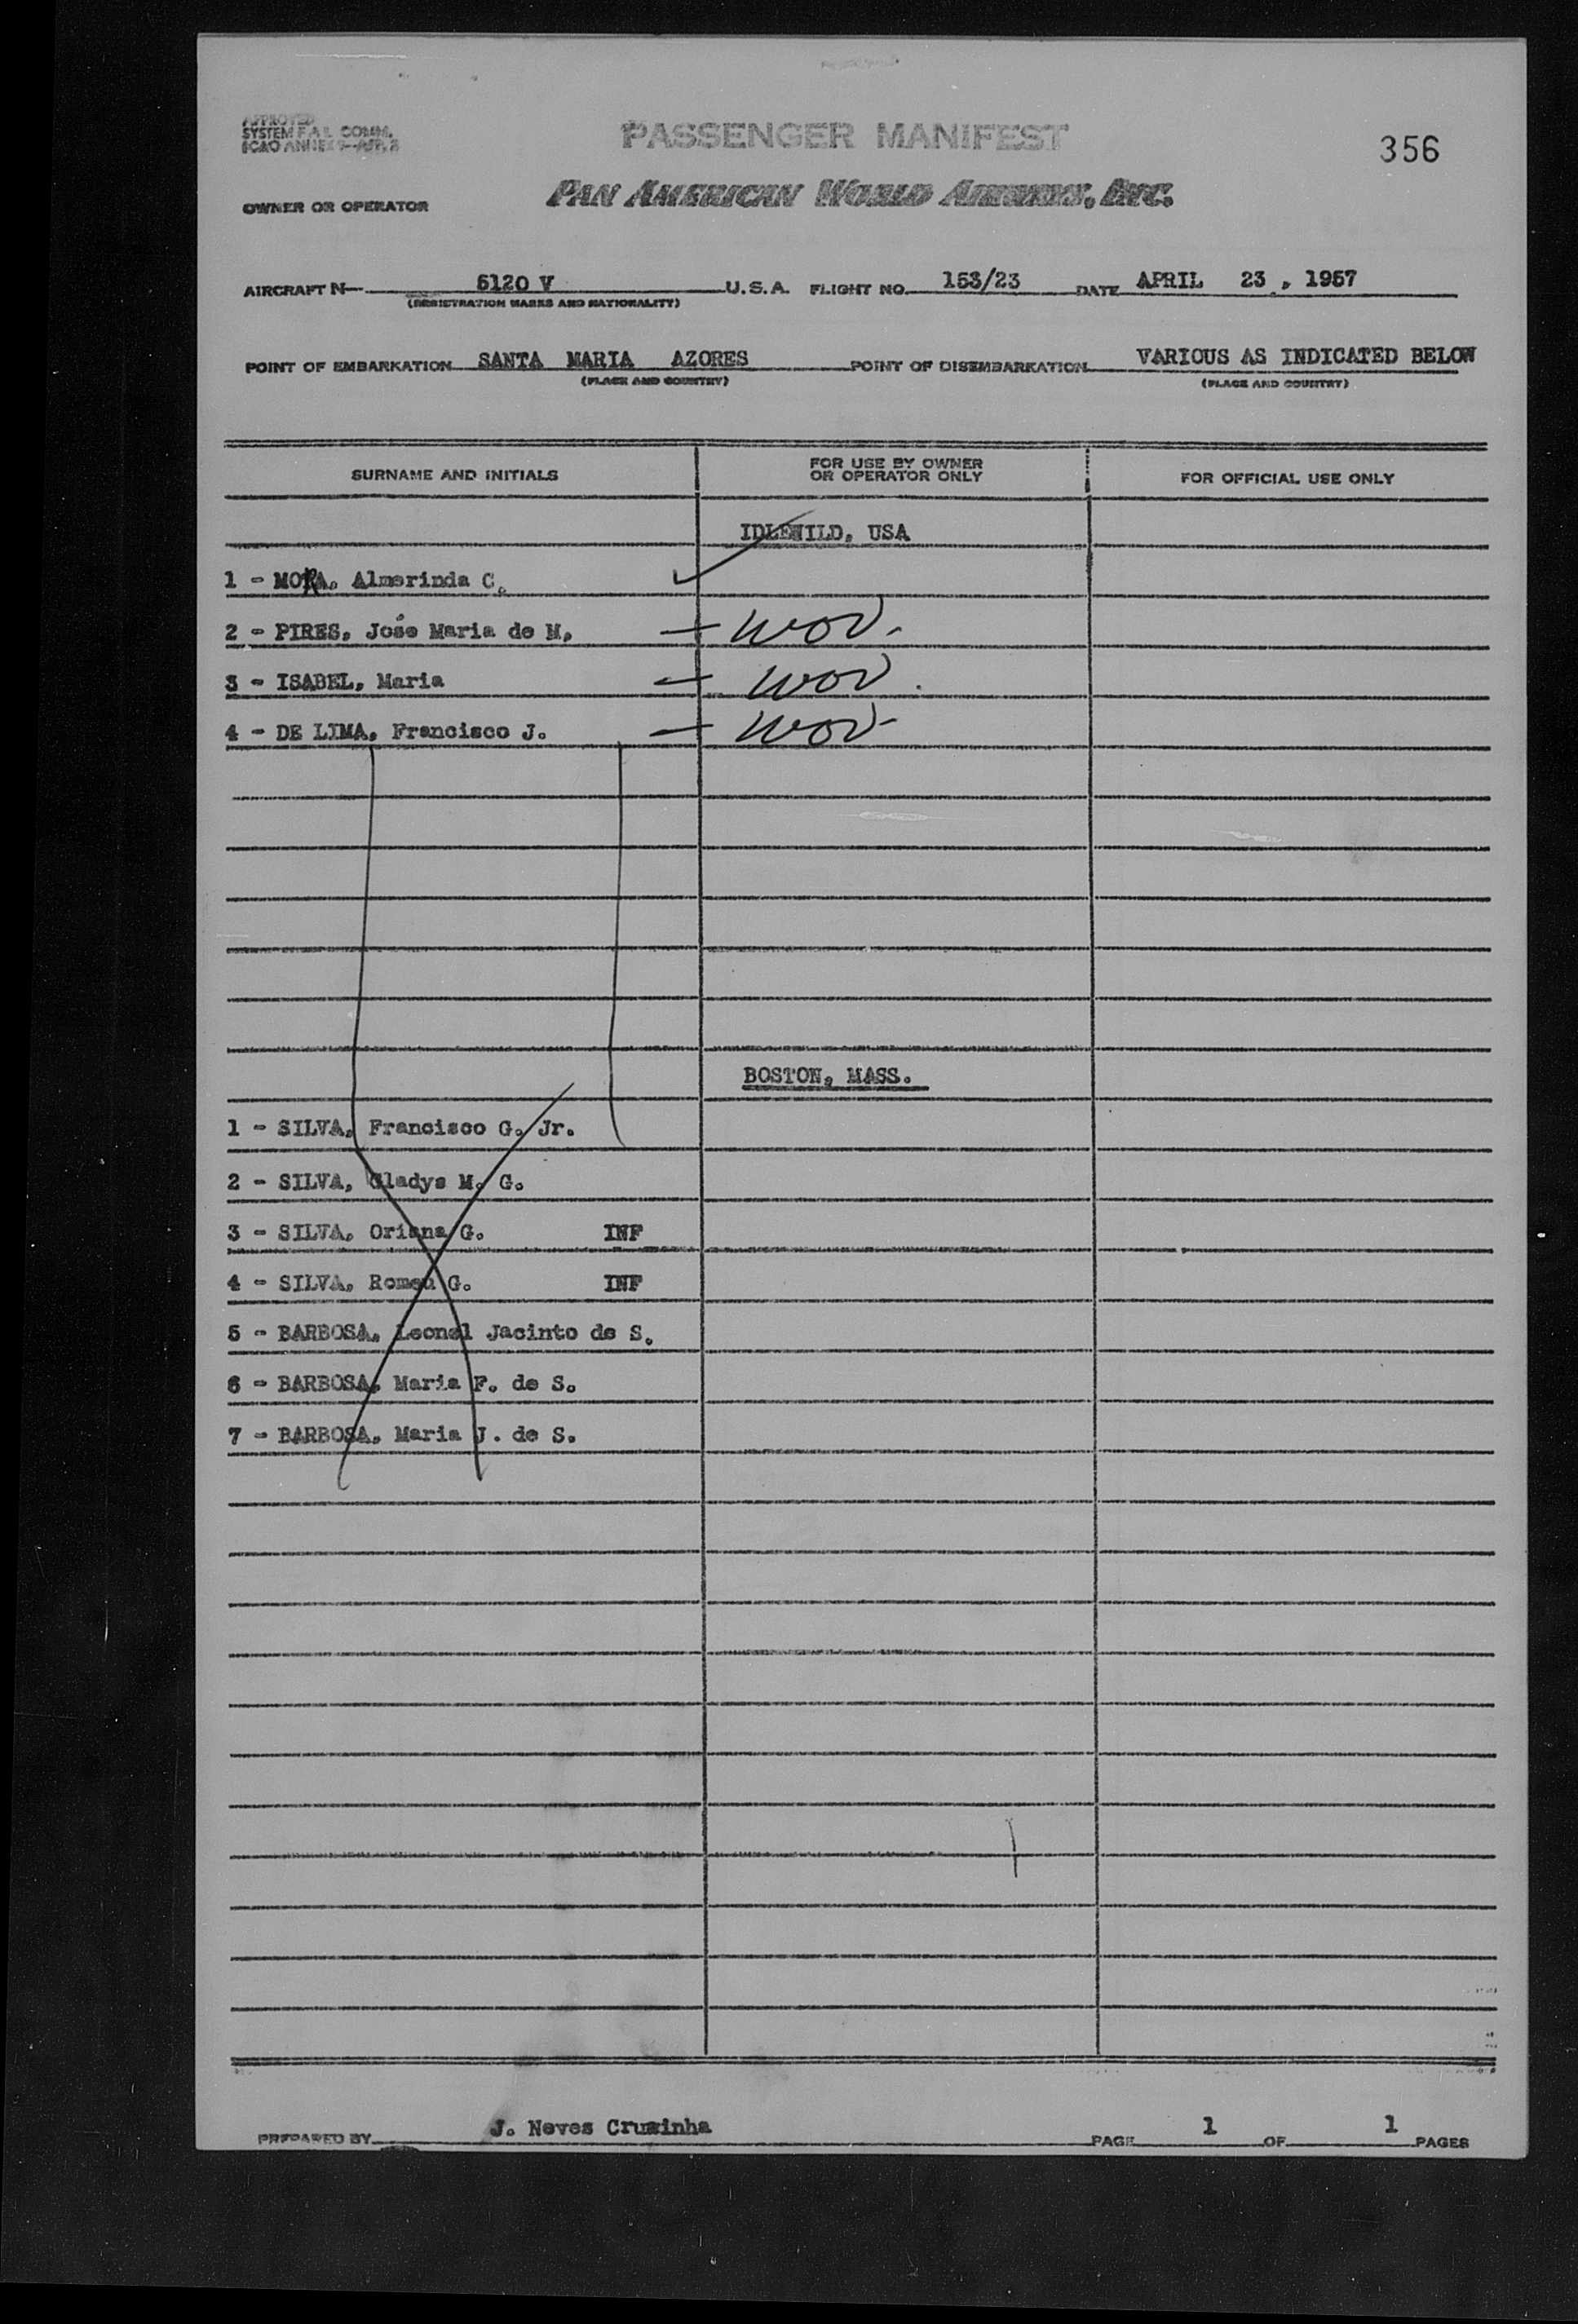 APPROVED
SYSTEM F.A.L. COMM.
ICAO ANNEX 9-APP. 3
PASSENGER MANIFEST
356
OWNER OR OPERATOR
PAN AMERICAN WORLD AIRWAYS, INC.
AIRCRAFT N- 5120 V U.S.A. FLIGHT NO. 153/23 DATE APRIL 23, 1957
(REGISTRATION MARKS AND NATIONALITY)
POINT OF EMBARKATION SANTA MARIA AZORES POINT OF DISEMBARKATION VARIOUS AS INDICATED BELOW
(PLACE AND COUNTRY) (PLACE AND COUNTRY)
SURNAME AND INITIALS
FOR USE BY OWNER
OR OPERATOR ONLY
FOR OFFICIAL USE ONLY
IDLEWILD, USA
1 - MORA, Almerinda C.
2 - PIRES, José Maria de M. - wov.
3 - ISABEL, Maria - wov.
4 - DE LIMA, Francisco J. - wov
BOSTON, MASS.
1 - SILVA, Francisco G. Jr.
2 - SILVA, Gladys M. G.
3 - SILVA, Oriana G. INF
4 - SILVA, Romeu G. INF
5 - BARBOSA, Leonel Jacinto de S.
6 - BARBOSA, Maria F. de S.
7 - BARBOSA, Maria J. de S.
PREPARED BY J. Neves Cruzinha PAGE 1 OF 1 PAGES